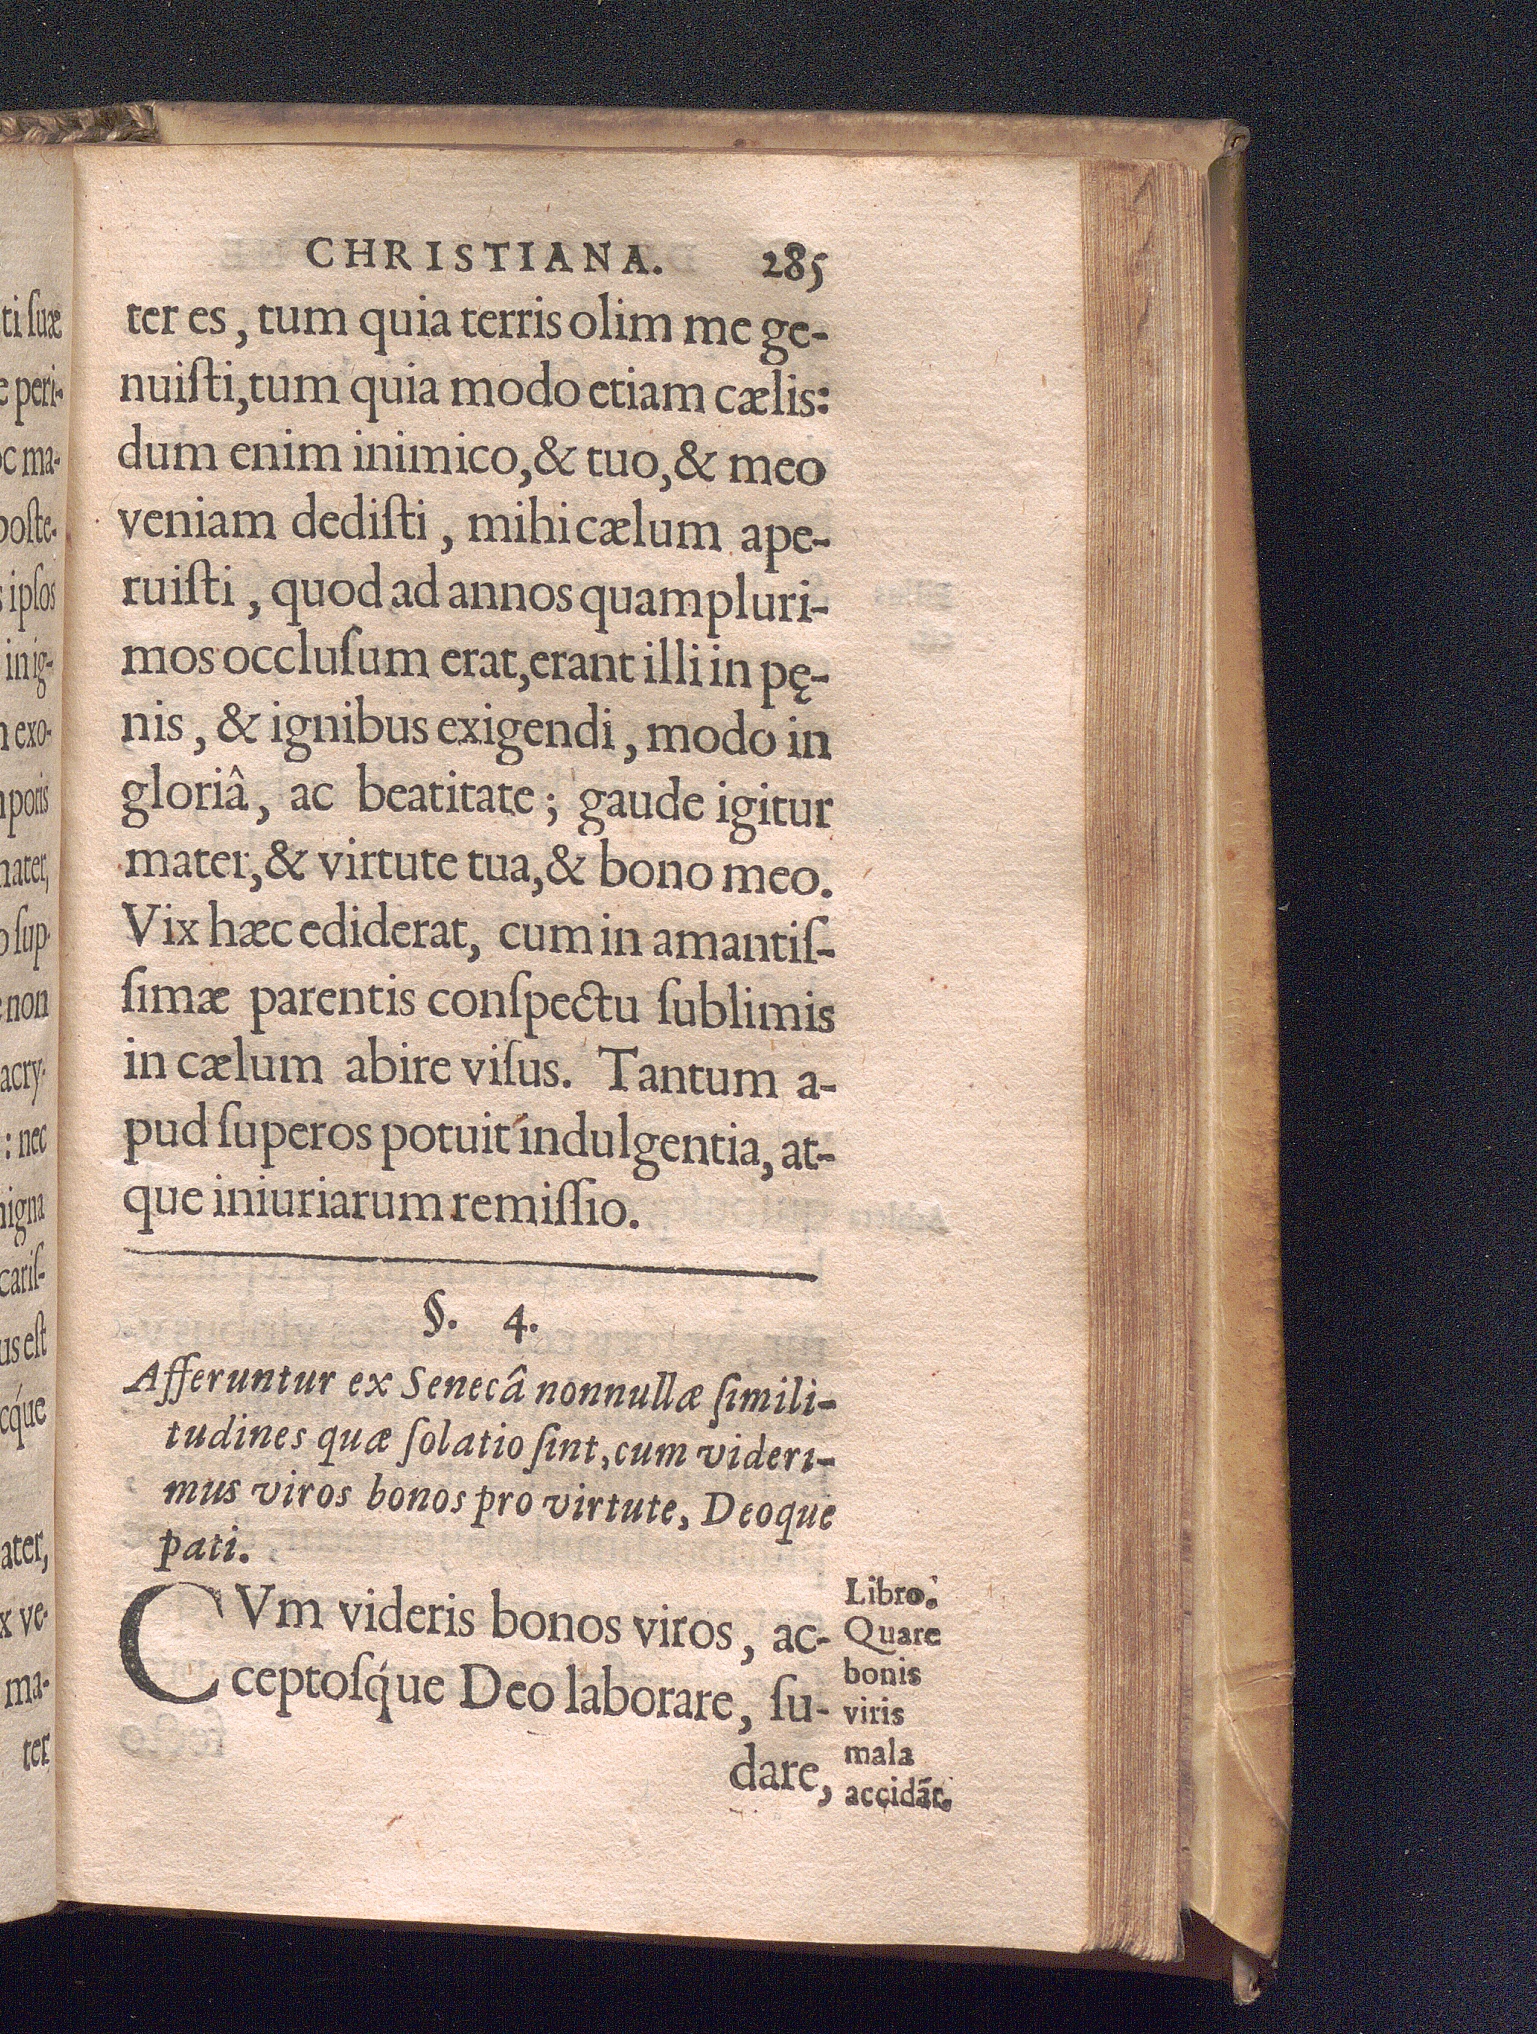 ti ſuæ
e peri-
oc ma-
poſte-
s ipſos
in ig-
n exo-
mporis
mater,
o ſup-
non
acry-
: nec
nigna
cariſ-
us eſt
cq́ue
ater,
x ve-
ma-
ter
CHRISTIANA. 285
ter es, tum quia terris olim me ge-
nuiſti, tum quia modo etiam cælis:
dum enim inimico, & tuo, & meo
veniam dediſti, mihi cælum ape-
ruiſti, quod ad annos quampluri-
mos occluſum erat, erant illi in pę-
nis, & ignibus exigendi, modo in
gloriâ, ac beatitate; gaude igitur
mater, & virtute tua, & bono meo.
Vix hæc ediderat, cum in amantiſ-
ſimæ parentis conſpectu ſublimis
in cælum abire viſus. Tantum a-
pud ſuperos potuit indulgentia, at-
que iniuriarum remiſſio.
§. 4.
Afferuntur ex Senecâ nonnullæ ſimili-
tudines quæ ſolatio ſint, cum videri-
mus viros bonos pro virtute, Deoque
pati.
CVm videris bonos viros, ac-
ceptoſq́ue Deo laborare, ſu-
dare,
Libro.
Quare
bonis
viris
mala
accidãt.